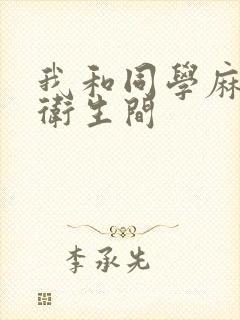 我和同學麻
衛生間
李承先